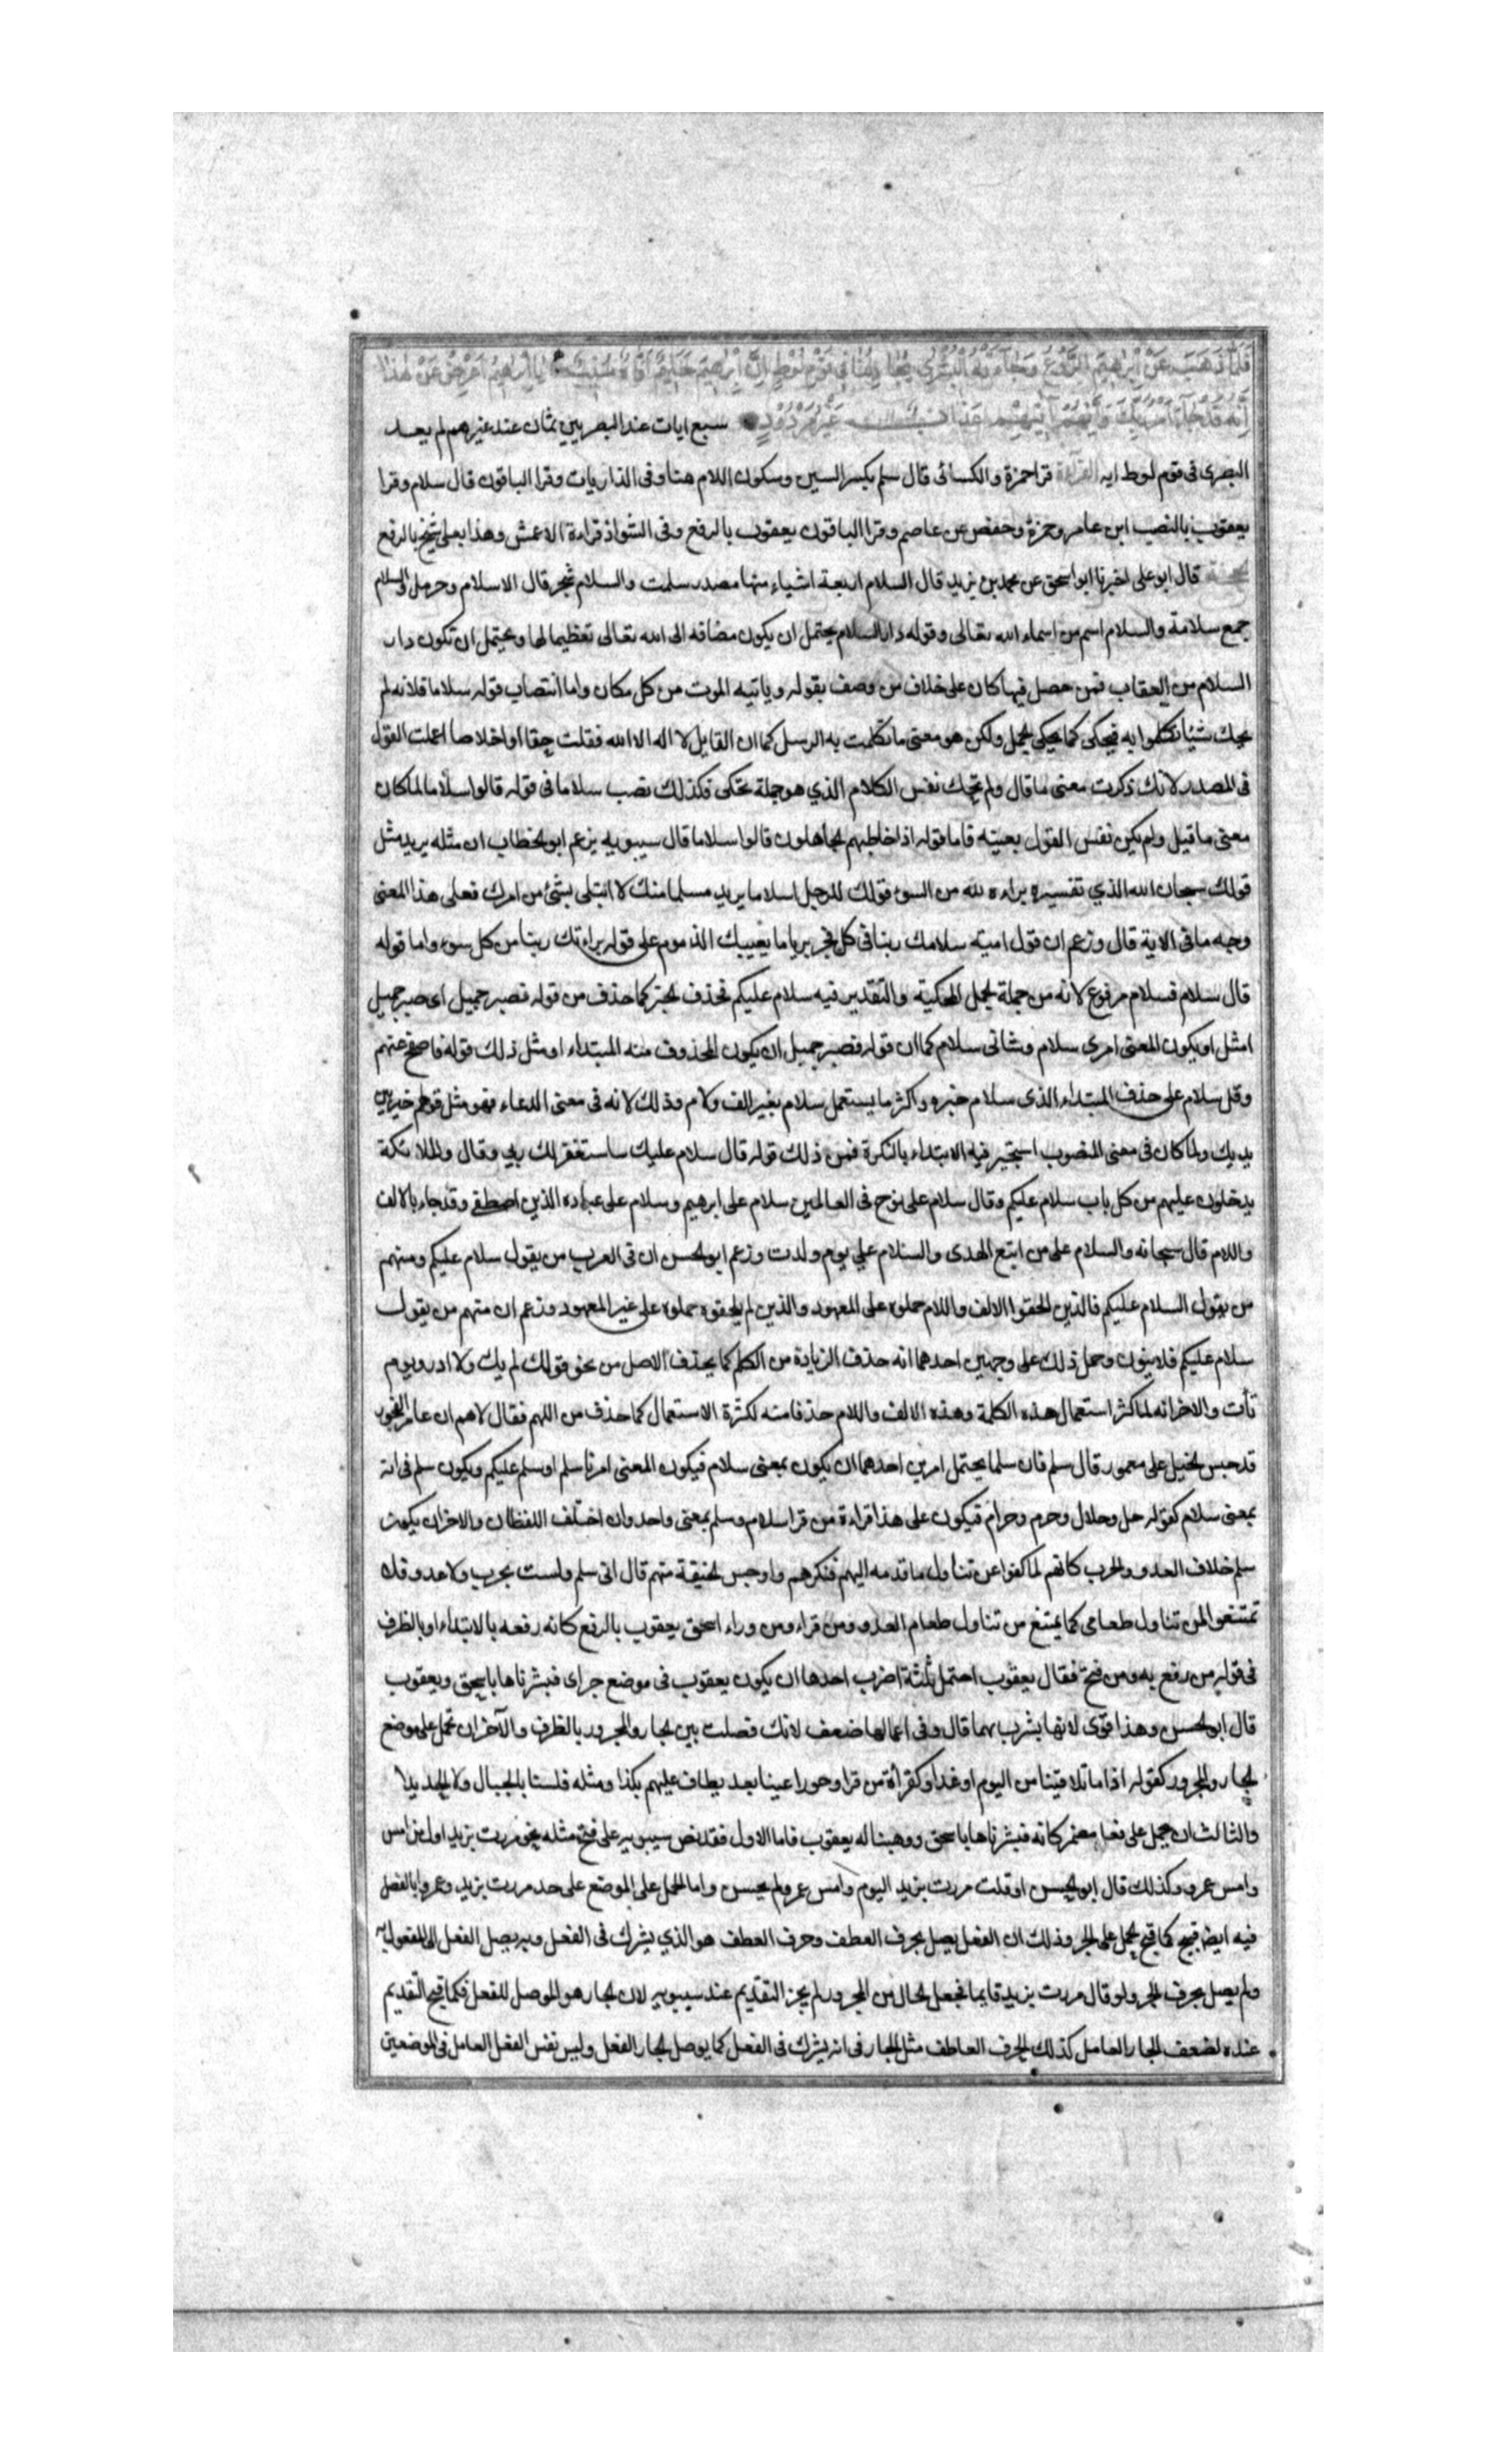 فَلَمَّا ذَهَبَ عَنْ اِبْرٰهِيمَ الرَّوْعُ وَجَاءَتْهُ الْبُشْرٰى يُجَادِلُنَا فِي قَوْمِ لُوْطٍ اِنَّ اِبْرٰهِيمَ لَحَلِيمٌ اَوَّاهٌ مُنِيبٌ يَا اِبْرٰهِيمُ اَعْرِضْ عَنْ هٰذَا
اِنَّهُ قَدْ جَاءَ اَمْرُ رَبِّكَ وَاِنَّهُمْ اٰتِيهِمْ عَذَابٌ غَيْرُ مَرْدُوْدٍ سبع ايات عند البصريين ثمان عند غيرهم لم يعد
البصرى فى قوم لوط ايه القراءة قرا حمزة والكسائى قال سلم بكسر السين وسكون اللام هنا وفى الذاريات وقرا الباقون قال سلام وقرا
يعقوب بالنصب ابن عامر وحمزة وحفص عن عاصم وقرا الباقون يعقوب بالرفع وفى الشواذ قراءة الاعمش وهذا بعلى شيخ بالرفع
الحجة قال ابو على اخبرنا ابو اسحق عن محمد بن يزيد قال السلام اربعة اشياء منها مصدر سلمت والسلام شجر قال الا سلام وحرمل والسلام
جمع سلامة والسلام اسم من اسماء الله تعالى وقوله دار السلام يحتمل ان يكون مضافه الى الله تعالى تعظيما لها ويحتمل ان تكون دار
السلام من العقاب فمن حصل فيها كان على خلاف من وصف بقوله وياتيه الموت من كل مكان واما انتصاب قوله سلاما فلانه لم
يحك شيئا تكلموا به فيحكى كما يحكى الجمل ولكن هو معنى ما تكلمت به الرسل كما ان القايل لا اله الا الله فقلت حقا او اخلاصا اعملت القول
فى المصدر لانك ذكرت معنى ما قال ولم تحك نفس الكلام الذي هو جملة تحكى فكذلك نصب سلاما فى قوله قالوا سلاما لما كان
معنى ما قيل ولم يكن نفس القول بعينه فاما قوله اذا خاطبهم الجاهلون قالوا سلاما قال سيبويه يزعم ابو الخطاب ان مثله يريد مثل
قولك سبحان الله الذي تفسيره براءه لله من السوء قولك للرجل سلاما يريد مسلما منك لا ابتلى بشئ من امرك فعلى هذا المعنى
وجه ما فى الاية قال وزعم ان قول امية سلامك ربنا فى كل فجر بريا ما يعيبك الذموم على قوله براءتك ربنا من كل سوء واما قوله
قال سلام فسلام مرفوع لانه من جملة الجمل المحكية والتقدير فيه سلام عليكم فحذف الخبر كما حذف من قوله فصبر جميل اى صبر جميل
امثل او يكون المعنى امرى سلام وشانى سلام كما ان قوله فصبر جميل ان يكون المحذوف منه المبتداء او مثل ذلك قوله فاصفح عنهم
وقل سلام على حذف المبتداء الذى سلام خبره واكثر ما يستعمل سلام بغير الف ولام وذلك لانه فى معنى الدعاء فهو مثل قولهم خير بين
يديك ولما كان فى معنى المنصوب استجيز فيه الابتداء بالنكرة فمن ذلك قوله قال سلام عليك ساستغفر لك ربي وقال والملائكة
يدخلون عليهم من كل باب سلام عليكم وقال سلام على نوح فى العالمين سلام على ابرهيم وسلام على عباده الذين اصطفى وقد جاء بالالف
واللام قال سبحانه والسلام على من اتبع الهدى والسلام على يوم ولدت وزعم ابو الحسن ان فى العرب من يقول سلام عليكم ومنهم
من يقول السلام عليكم فالذين الحقوا الالف واللام حملوه على المعهود والذين لم يلحقوه حملوه على غير المعهود وزعم ان منهم من يقول
سلام عليكم فلا ينون وحمل ذلك على وجهين احدهما انه حذف الزيادة من الكلم كما يحذف الاصل من نحو قولك لم يك ولا ادر ويوم
تأت والاخر انه لما كثر استعمال هذه الكلمة وهذه الالف واللام حذفا منه لكثرة الاستعمال كما حذف من اللهم فقال لاهم ان عامر الفجور
قد حبس الخيل على معمور قال سلم فان سلما يحتمل امرين احدهما ان يكون بمعنى سلام فيكون المعنى امرنا سلم او سلم عليكم ويكون سلم فى انه
بمعنى سلام كقوله حل وحلال وحرم وحرام فيكون على هذا قراءة من قرا سلام وسلم بمعنى واحد وان اختلف اللفظان والاخر ان يكون
سلم خلاف العدو والحرب كانهم لما كفوا عن تناول ما قدمه اليهم فنكرهم واوجس الخيفة منهم قال انى سلم ولست بحرب ولا عدو فلا
تمتنعوا من تناول طعامى كما يمتنع من تناول طعام العدو ومن قراء ومن وراء اسحق يعقوب بالرفع كانه رفعه بالابتداء او بالظرف
فى قول من رفع به ومن فتح فقال يعقوب احتمل ثلثة اضرب احدها ان يكون يعقوب فى موضع جر اى فبشرناها باسحق ويعقوب
قال ابو الحسن وهذا قوى لانها بشرت بهما قال وفى اعمالها ضعف لانك فصلت بين الجار والمجرور بالظرف والآخر ان تحمل على موضع
الجار والمجرور كقوله اذا ما تلاقينا من اليوم او غدا وكقراءة من قرا وحورا عينا بعد يطاف عليهم بكذا ومثله فلسنا بالجبال ولا الحديدا
والثالث ان يحمل على فعل مضمر كانه فبشرناها باسحق ووهبنا له يعقوب فاما الاول فقد نص سيبويه على قبح مثله نحو مررت بزيد اول من امس
وامس عمرو وكذلك قال ابو الحسن او قلت مررت بزيد اليوم وامس عمرو لم يحسن واما الحمل على الموضع على حد مررت بزيد وعمروا بالفصل
فيه ايضا قبيح كما قبح الحمل على الجر وذلك ان الفعل يصل بحرف العطف وحرف العطف هو الذي يشرك فى الفعل وبه يصل الفعل الى المفعول به
ولم يصل بحرف الجر ولو قال مررت بزيد قايما فجعل الحال من المجرور لم يجز التقديم عند سيبويه لان الجار هو الموصل للفعل فكما قبح التقديم
عنده لضعف الجار العامل كذلك الحرف العاطف مثل الجار فى انه يشرك فى الفعل كما يوصل الجار الفعل وليس نفس الفعل العامل فى الموضعين